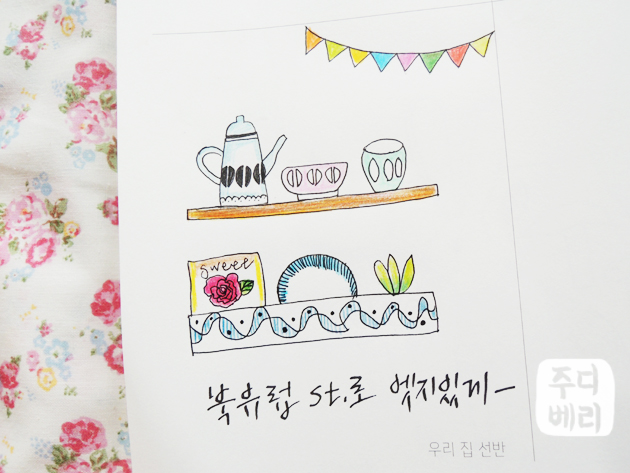 sweee
북유럽 st.로 엣지있게~
우리 집 선반
주디
베리